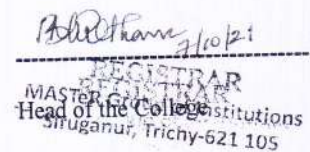 7/10/21
REGISTRAR
REGISTRAR
MASTeR GROUP OF Institutions
Head of the College
Siruganur, Trichy-621 105